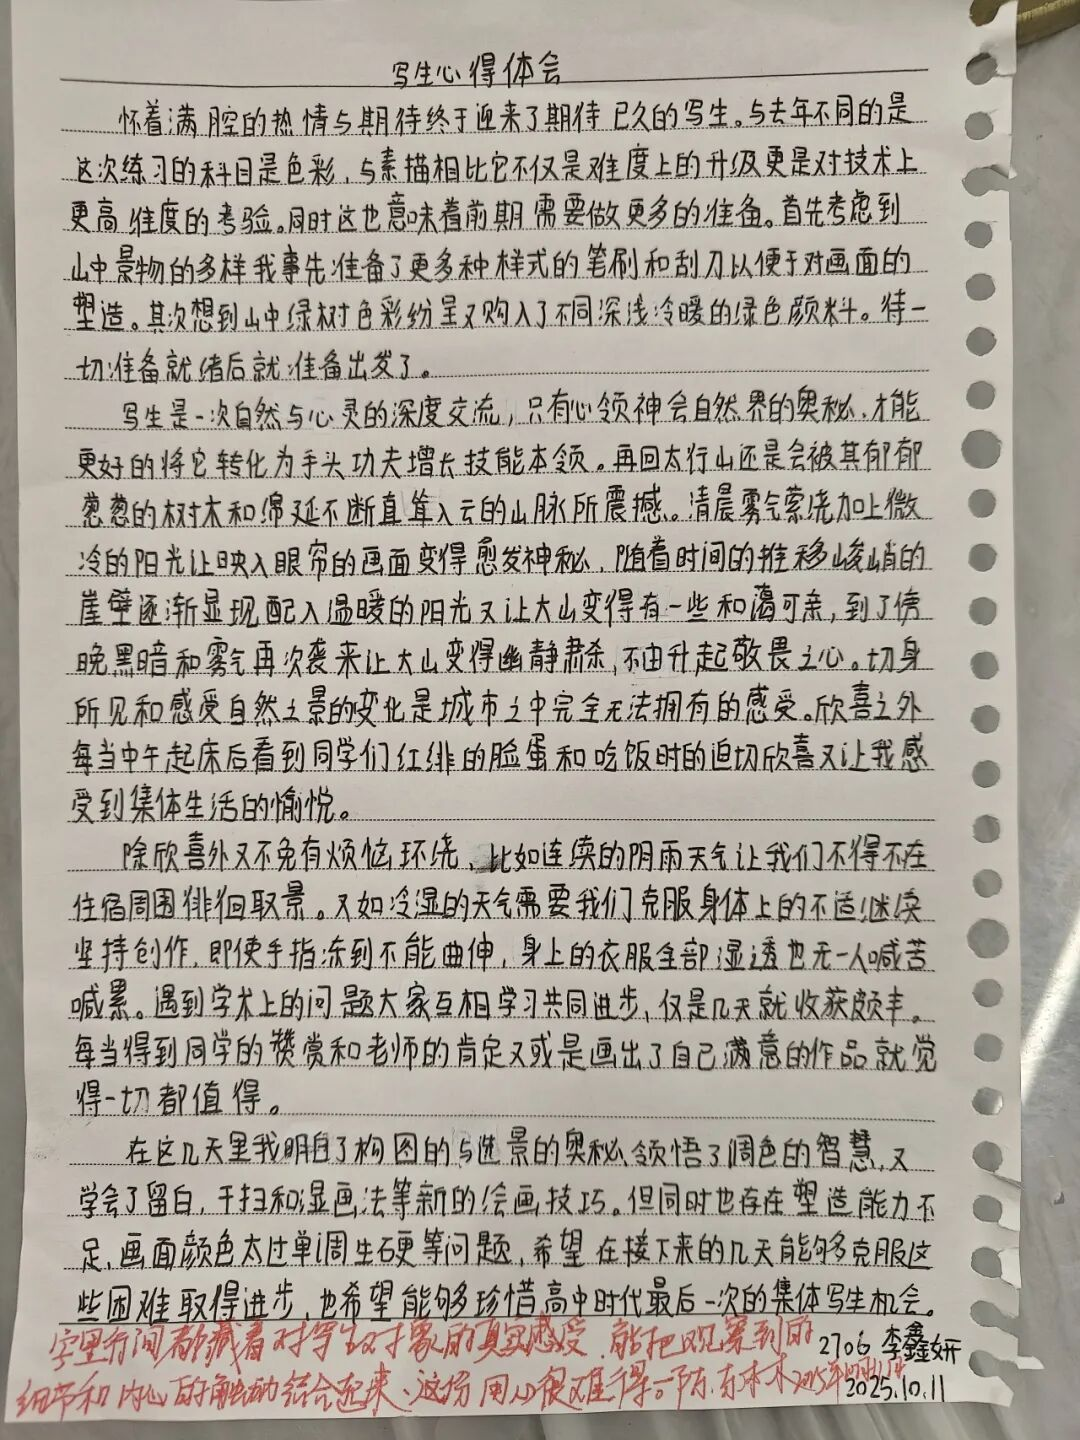 写生心得体会
怀着满腔的热情与期待终于迎来了期待已久的写生。与去年不同的是
这次练习的科目是色彩，与素描相比它不仅是难度上的升级更是对技术上
更高维度的考验。同时这也意味着前期需要做更多的准备。首先考虑到
山中景物的多样我事先准备了更多种样式的笔刷和刮刀以便于对画面的
塑造。其次想到山中绿树色彩纷呈又购入了不同深浅冷暖的绿色颜料。待一
切准备就绪后就准备出发了。
写生是一次自然与心灵的深度交流，只有心领神会自然界的奥秘，才能
更好的将它转化为手头功夫增长技能本领。再回太行山还是会被其郁郁
葱葱的树木和绵延不断直耸入云的山脉所震撼。清晨雾气萦绕加上微
冷的阳光让映入眼帘的画面变得愈发神秘，随着时间的推移峻峭的
崖壁逐渐显现配入温暖的阳光又让大山变得有一些和蔼可亲，到了傍
晚黑暗和雾气再次袭来让大山变得幽静肃杀，不由升起敬畏之心。切身
所见和感受自然之景的变化是城市之中完全无法拥有的感受。欣喜之外
每当中午起床后看到同学们红绯的脸蛋和吃饭时的迫切欣喜又让我感
受到集体生活的愉悦。
除欣喜外又不免有烦恼环绕，比如连续的阴雨天气让我们不得不在
住宿周围徘徊取景。又如冷湿的天气需要我们克服身体上的不适继续
坚持创作，即使手指冻到不能曲伸，身上的衣服全部湿透也无一人喊苦
喊累。遇到学术上的问题大家互相学习共同进步，仅是几天就收获颇丰。
每当得到同学的赞赏和老师的肯定又或是画出了自己满意的作品就觉
得一切都值得。
在这几天里我明白了构图的与选景的奥秘，领悟了调色的智慧，又
学会了留白，干扫和湿画法等新的绘画技巧。但同时也存在塑造能力不
足，画面颜色太过单调生硬等问题，希望在接下来的几天能够多克服这
些困难取得进步，也希望能够多珍惜高中时代最后一次的集体写生机会。
字里行间都藏着对写生对象的真实感受，能把观察到的
2706 李鑫妍
细节和内心的触动结合起来，这份用心很难得。陈
2025.10.11